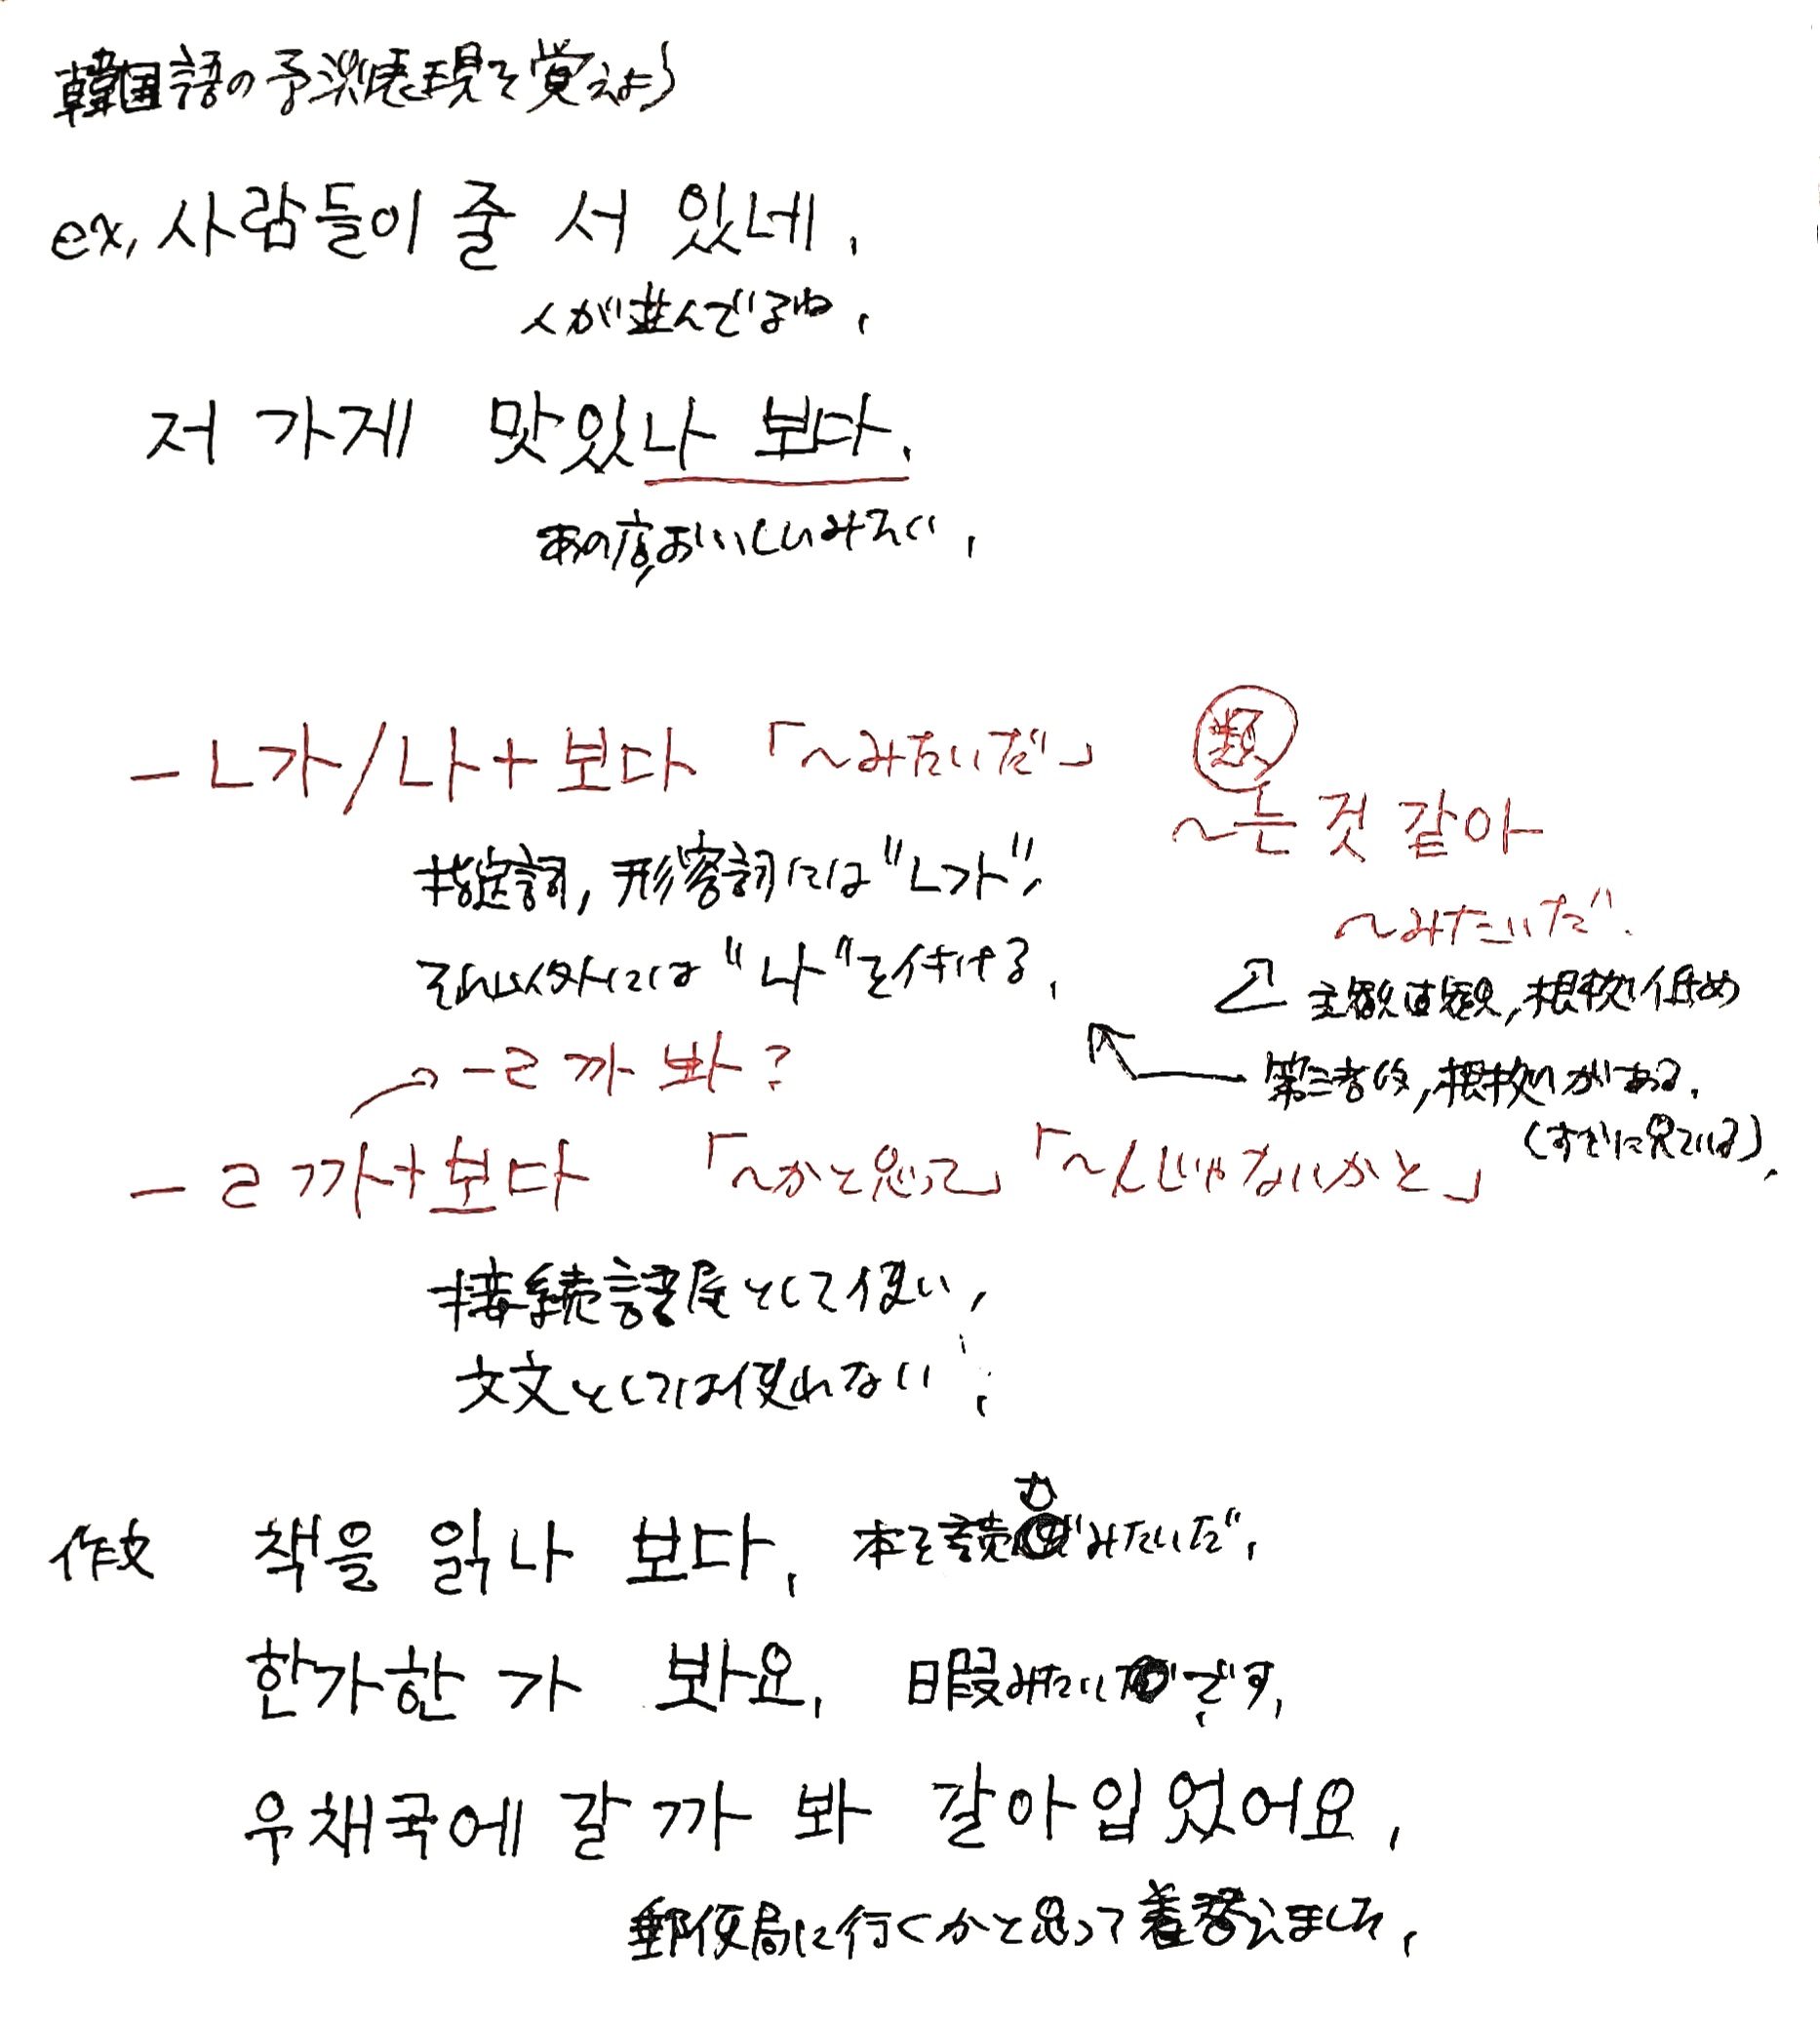 韓国語の予測表現を覚えよう
ex. 사람들이 줄 서 있네.
人が並んでるね.
저 가게 맛있나 보다.
あの店,おいしいみたい.
-ㄴ가/나+보다 「~みたいだ」
類
~는 것 같아
~みたいだ.
指定詞, 形容詞には"ㄴ가",
それ以外には"나"を付ける.
主観直観, 根拠低め
第三者的, 根拠がある.
(すでに見ている).
-ㄹ까 봐?
-ㄹ까+보다 「~かと思って」「~んじゃないかと」
接続語尾として使い,
文文としては使れない.
作文 책을 읽나 보다. 本を読むみたいだ.
한가한 가 봐요. 暇みたいです.
우채국에 갈 까 봐 갈아입었어요.
郵便局に行くかと思って着替えました.